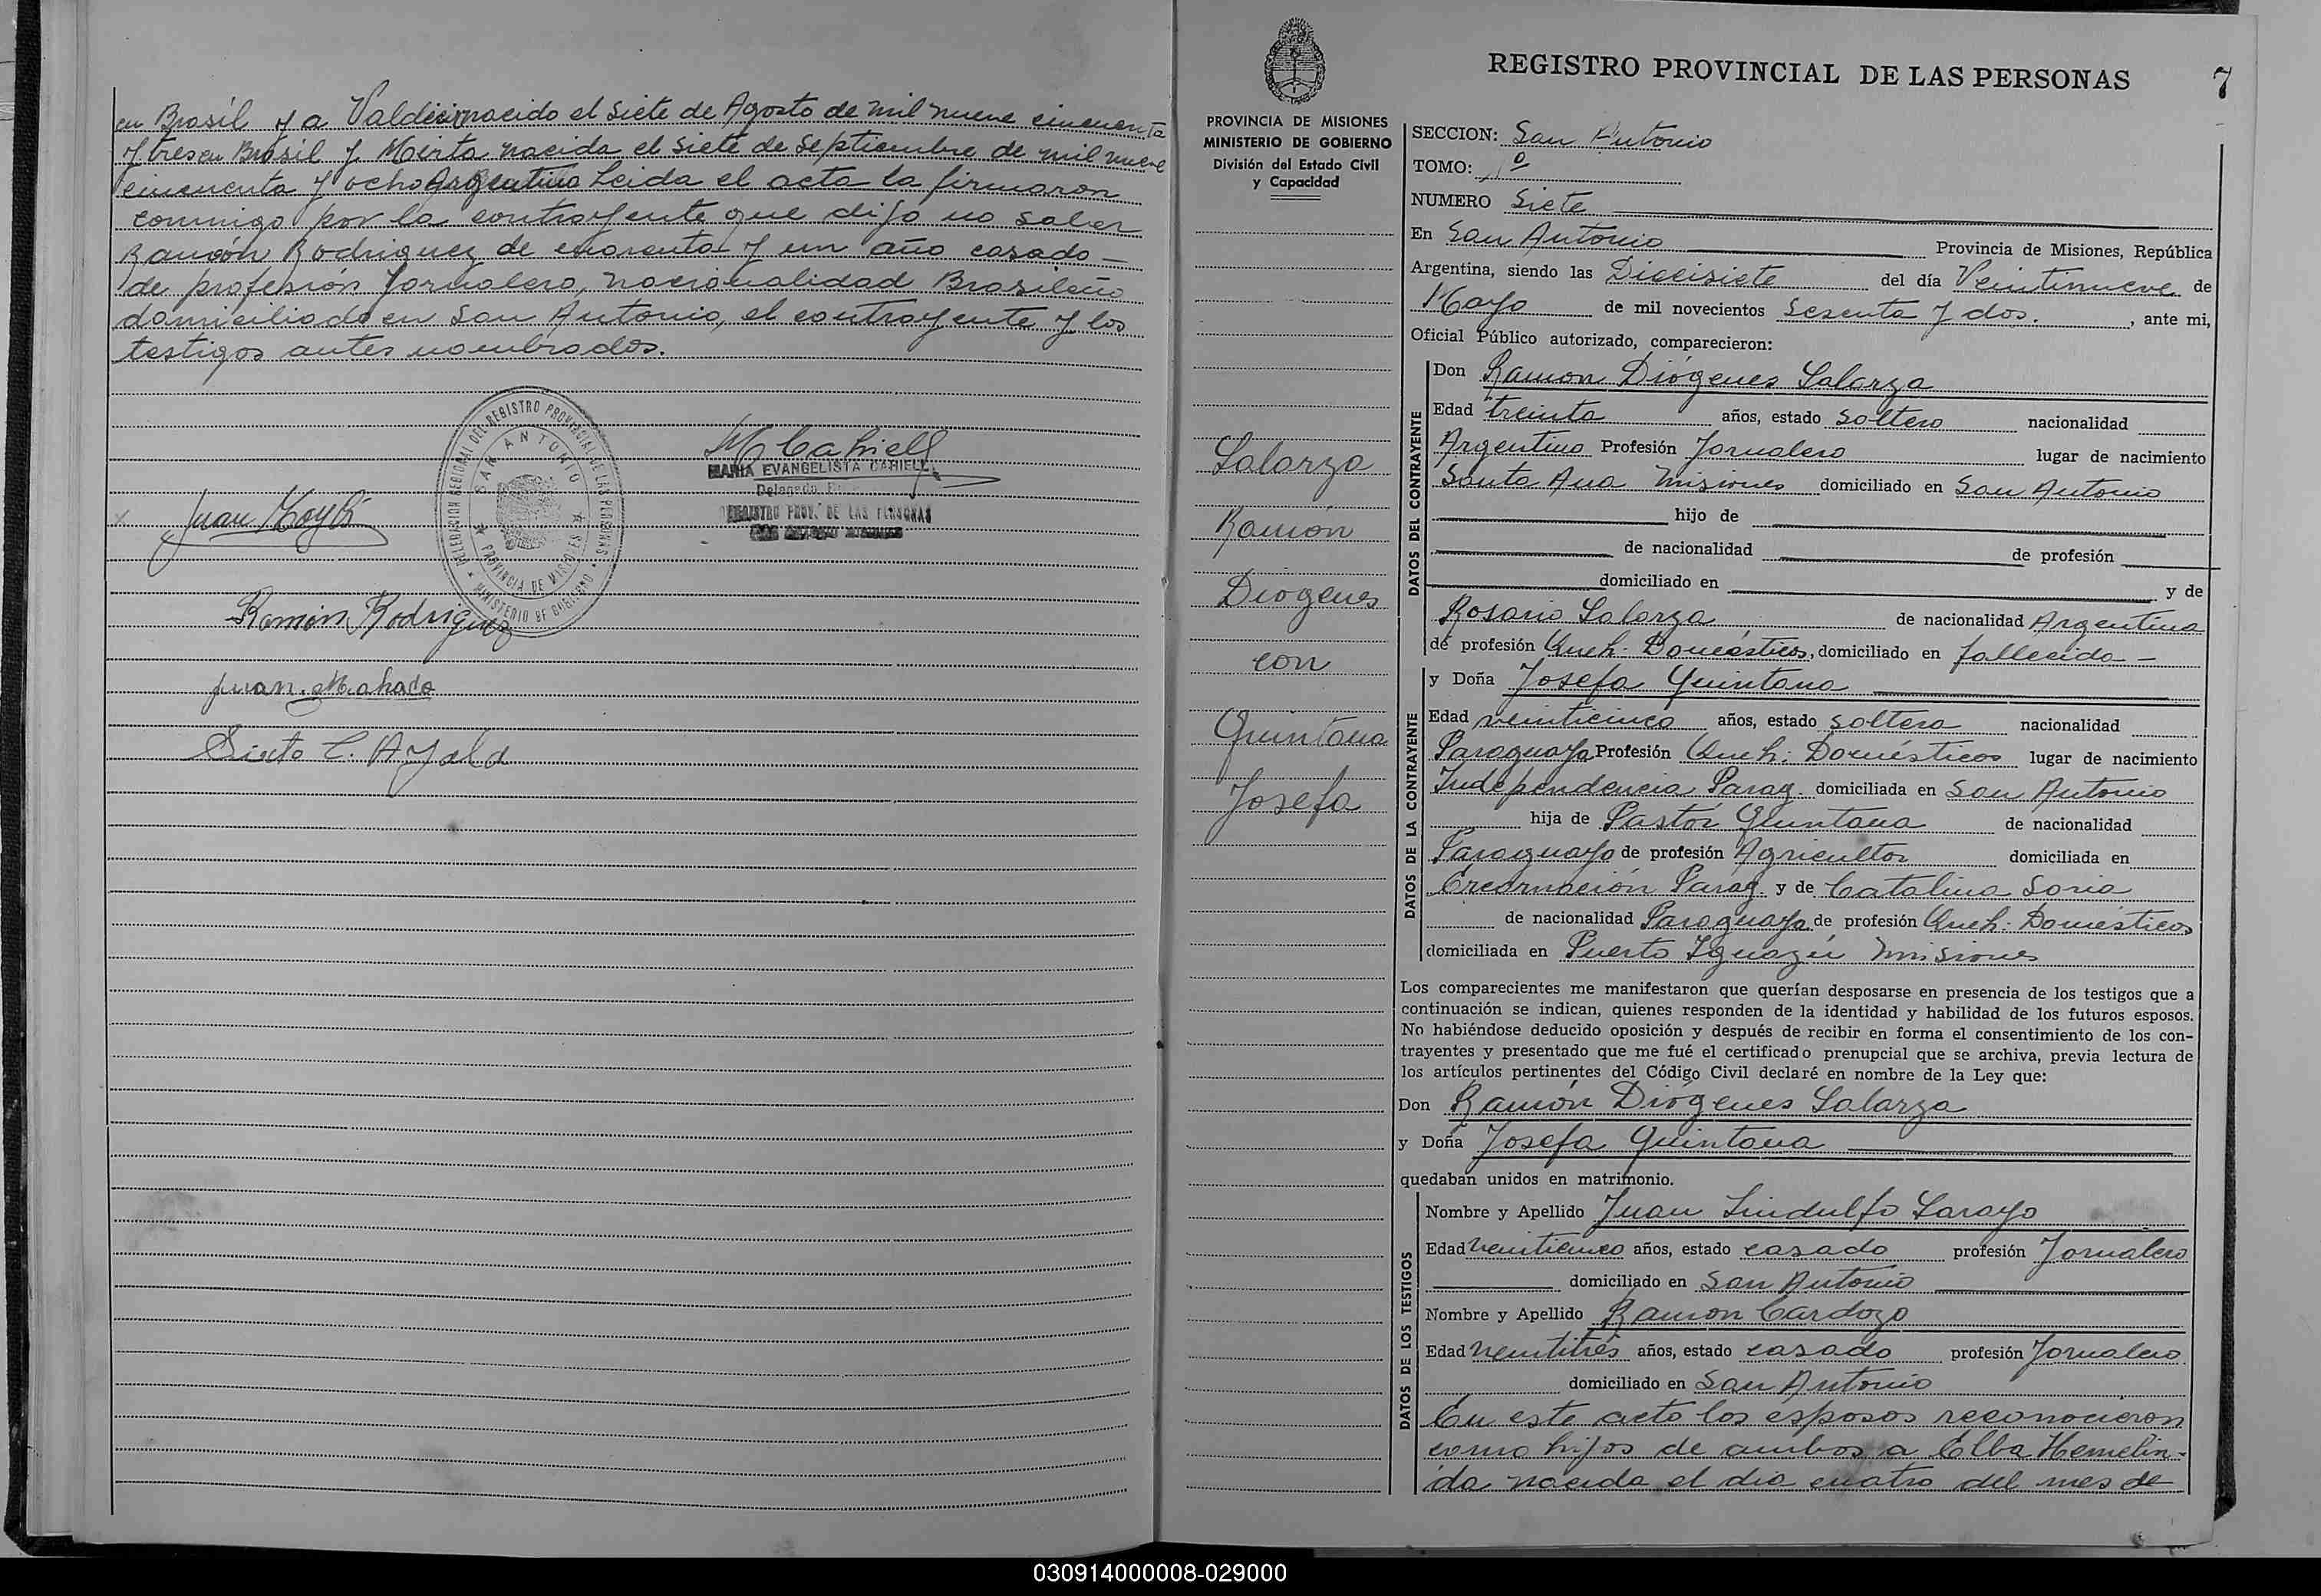 en Brasil y a Valdecir nacido el siete de Agosto de mil nueve cincuenta
y tres en Brasil y Mirta nacida el siete de Septiembre de mil nueve
cincuenta y ocho Argentina Leida el acta la firmaron
conmigo por la contrayente que dijo no saber
Ramón Rodriguez de cuarenta y un año casado —
de profesión Jornalero, nacionalidad Brasileño
domiciliado en San Antonio, el contrayente y los
testigos antes nombrados.
DELEGACION REGIONAL DEL REGISTRO PROVINCIAL DE LAS PERSONAS
* MINISTERIO DE GOBIERNO *
SAN ANTONIO
* PROVINCIA DE MISIONES *
M Cahiell
MARIA EVANGELISTA CAHIELL
Delegada
REGISTRO PROV. DE LAS PERSONAS
SAN ANTONIO MISIONES
Juan
Ramón Rodriguez
Juan Machado
Sixto C. Ayala
REGISTRO PROVINCIAL DE LAS PERSONAS
7
PROVINCIA DE MISIONES
MINISTERIO DE GOBIERNO
División del Estado Civil
y Capacidad
Lalarza
Ramón
Diogenes
con
Quintana
Josefa
SECCION: San Antonio
TOMO: 1º
NUMERO Siete
En San Antonio Provincia de Misiones, República
Argentina, siendo las Diecisiete del día Veintinueve de
Mayo de mil novecientos Sesenta y dos. , ante mi,
Oficial Público autorizado, comparecieron:
DATOS DEL CONTRAYENTE
Don Ramon Diógenes Lalarza
Edad treinta años, estado soltero nacionalidad
Argentino Profesión Jornalero lugar de nacimiento
Santa Ana Misiones domiciliado en San Antonio
hijo de
de nacionalidad de profesión
domiciliado en y de
Rosario Lalarza de nacionalidad Argentina
de profesión Queh. Domésticos, domiciliado en fallecida —
DATOS DE LA CONTRAYENTE
y Doña Josefa Quintana
Edad veinticinco años, estado soltera nacionalidad
Paraguaya Profesión Queh. Domésticos lugar de nacimiento
Independencia Parag. domiciliada en San Antonio
hija de Pastor Quintana de nacionalidad
Paraguayo de profesión Agricultor domiciliada en
Encarnación Parag. y de Catalina Soria
de nacionalidad Paraguaya de profesión Queh. Domésticos
domiciliada en Puerto Iguazú Misiones
Los comparecientes me manifestaron que querían desposarse en presencia de los testigos que a
continuación se indican, quienes responden de la identidad y habilidad de los futuros esposos.
No habiéndose deducido oposición y después de recibir en forma el consentimiento de los con-
trayentes y presentado que me fué el certificado prenupcial que se archiva, previa lectura de
los artículos pertinentes del Código Civil declaré en nombre de la Ley que:
Don Ramón Diógenes Lalarza
y Doña Josefa Quintana
quedaban unidos en matrimonio.
DATOS DE LOS TESTIGOS
Nombre y Apellido Juan Lindulfo Sarayo
Edad veinticinco años, estado casado profesión Jornalero
domiciliado en San Antonio
Nombre y Apellido Ramon Cardozo
Edad veintitrés años, estado casado profesión Jornalero
domiciliado en San Antonio
En este acto los esposos reconocieron
como hijos de ambos a Elba Hemelin-
da nacida el dia cuatro del mes de
030914000008-029000